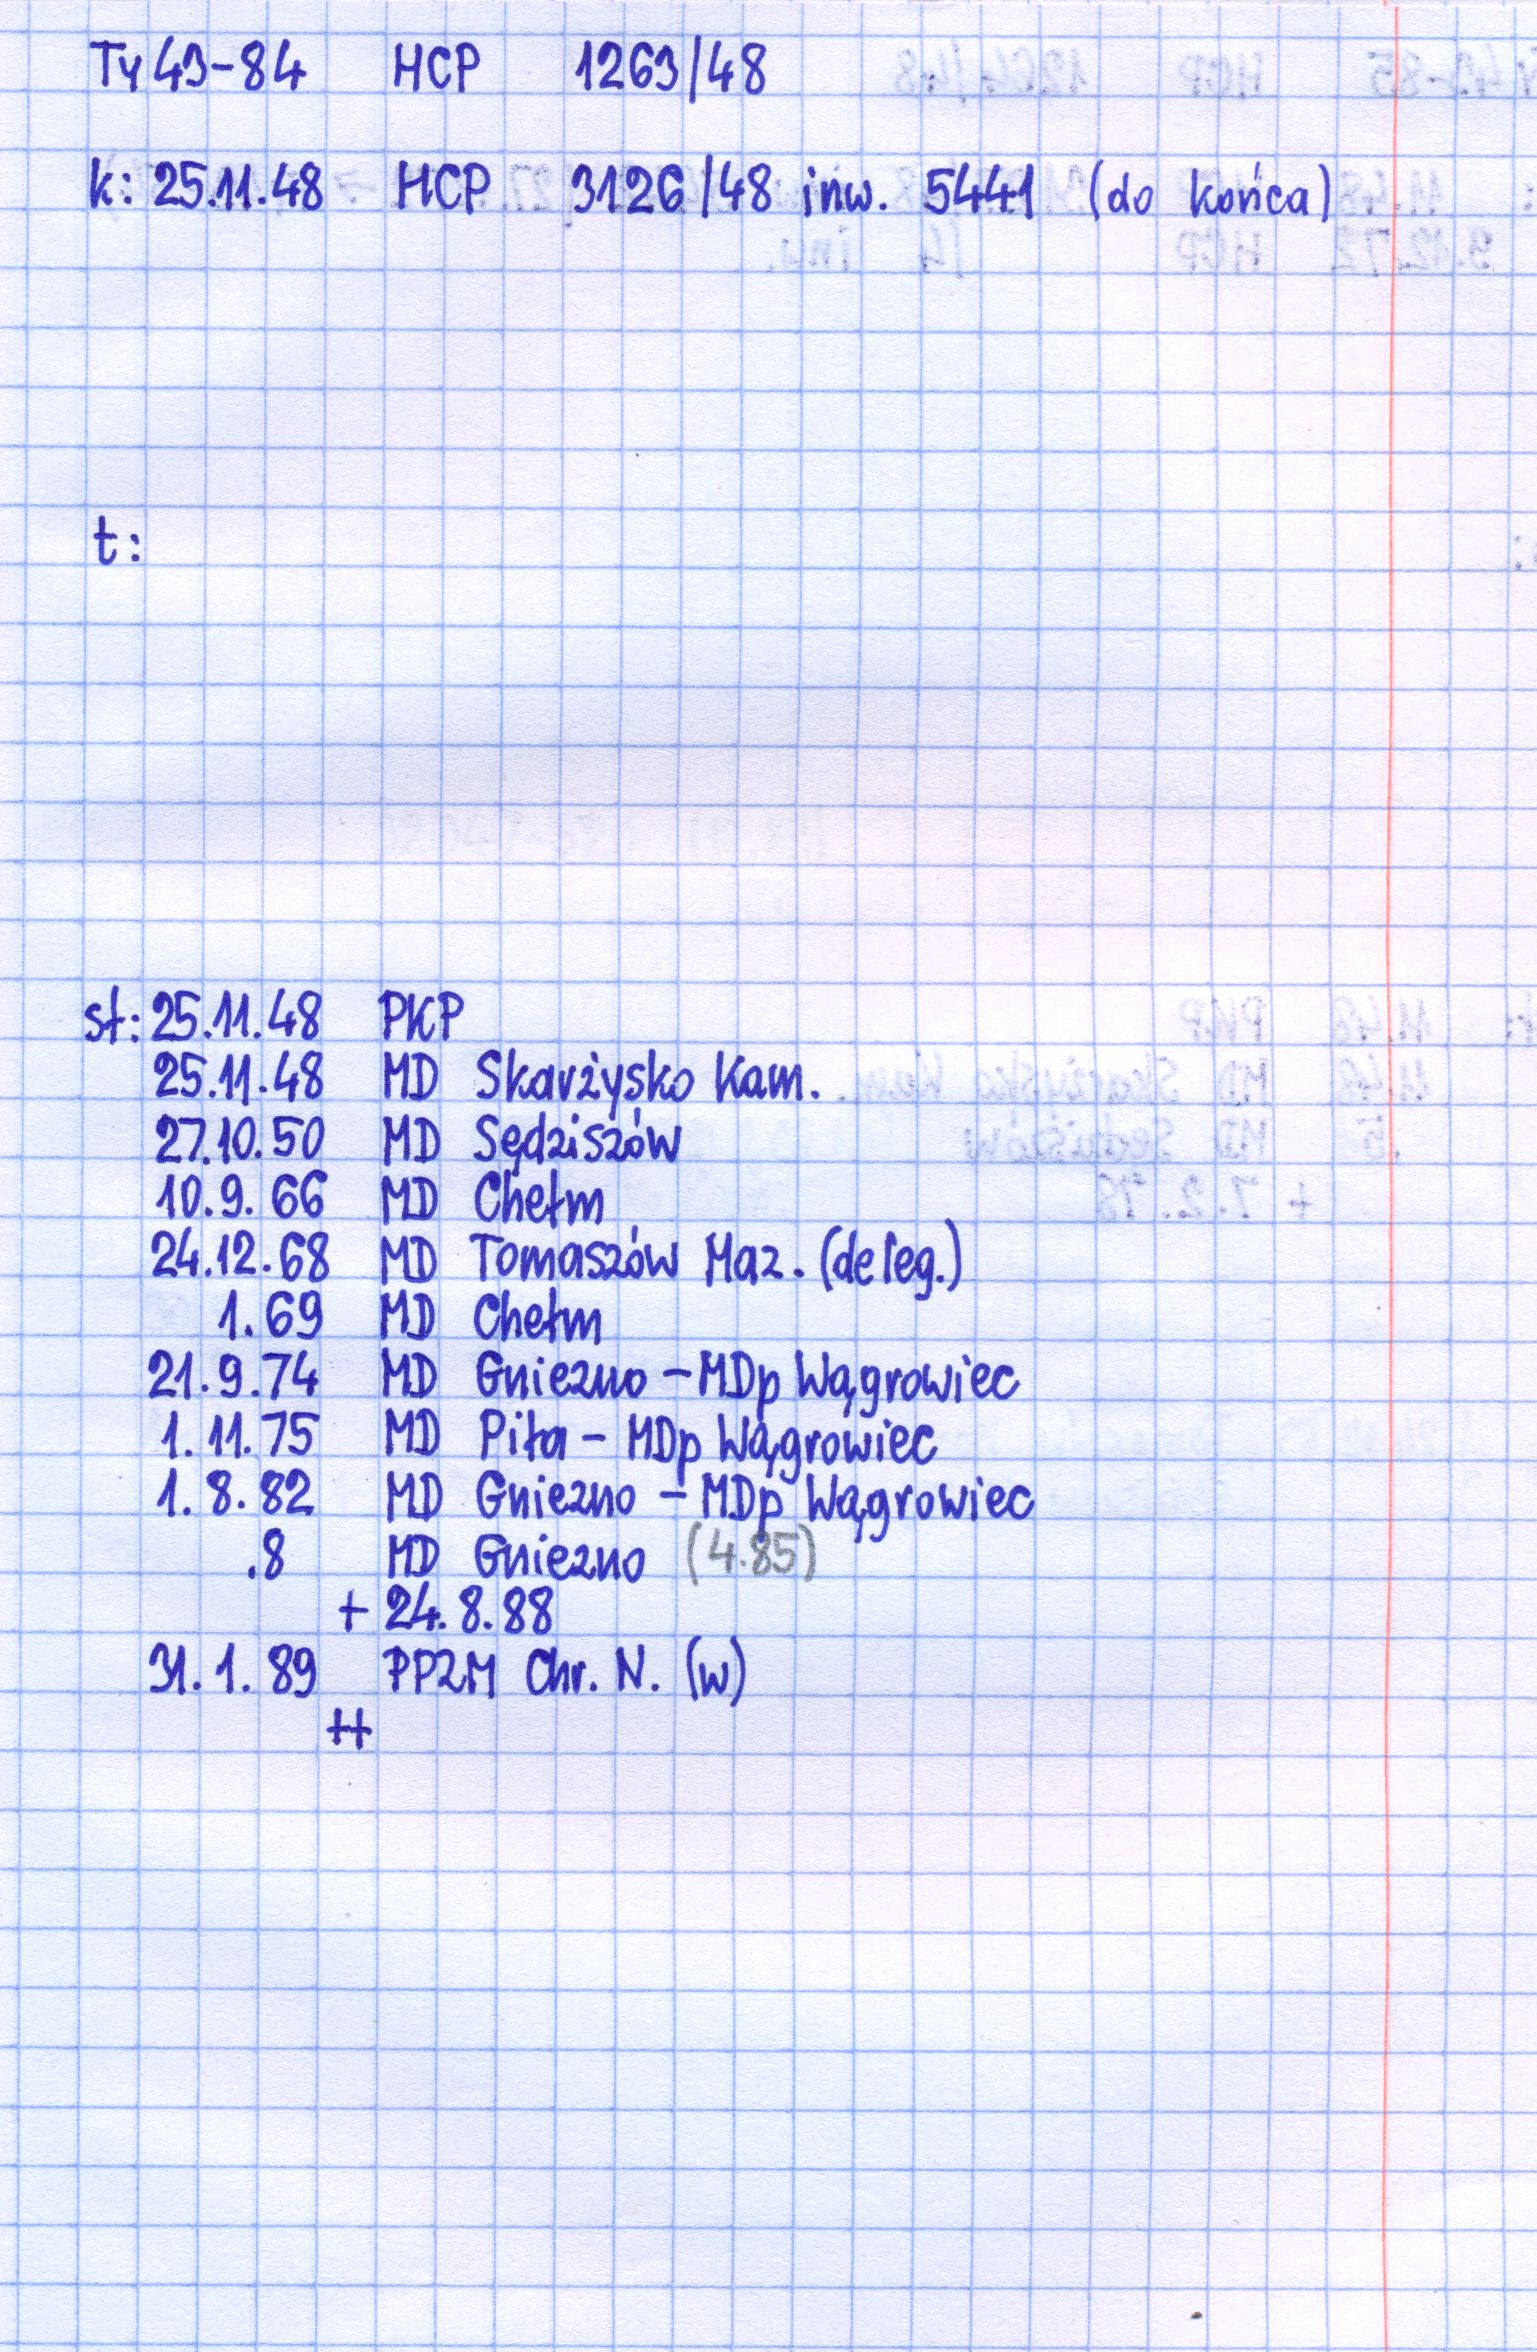 Ty43-84 HCP 1263/48
k: 25.11.48 HCP 3126/48 inw. 5441 (do końca)
t:
st: 25.11.48 PKP
25.11.48 MD Skarżysko Kam.
27.10.50 MD Sędziszów
10.9.66 MD Chełm
24.12.68 MD Tomaszów Maz. (deleg.)
1.69 MD Chełm
21.9.74 MD Gniezno - MDp Wągrowiec
1.11.75 MD Piła - MDp Wągrowiec
1.8.82 MD Gniezno - MDp Wągrowiec
.8 MD Gniezno (4.85)
+ 24.8.88
31.1.89 PPZM Chr. N. (w)
++